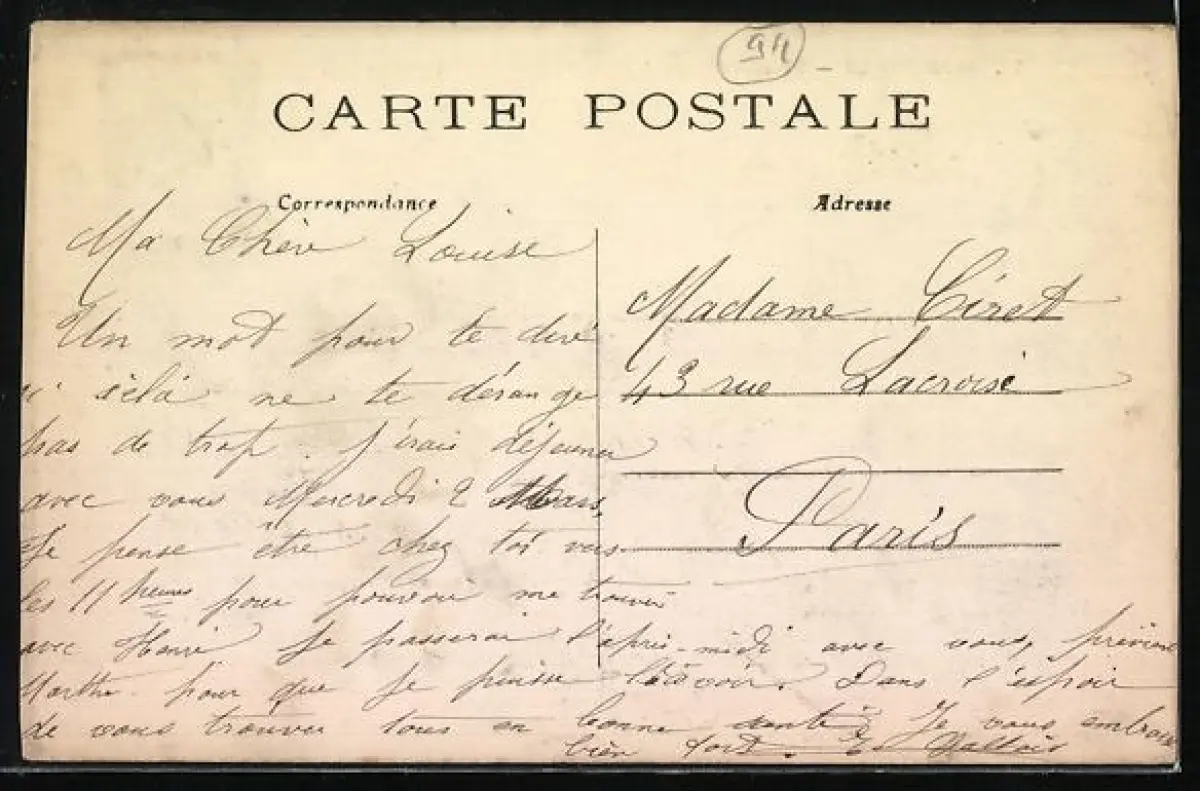 94
CARTE POSTALE
Correspondance
Adresse
Ma Chère Louise
Un mot pour te dire
si cèlà ne te dérange
pas de trop. J'irais déjeuner
avec vous Mercredi 2 Mars,
Je pense être chez toi vers
les 11 heures pour pouvoir me trouver
avec Henri Je passerai l'après-midi avec vous, préviens
Marthe pour que je puisse la voir. Dans l'espoir
de vous trouver tous en bonne santé Je vous embrasse
bien fort.
Madame
43 rue Lacroix
Paris